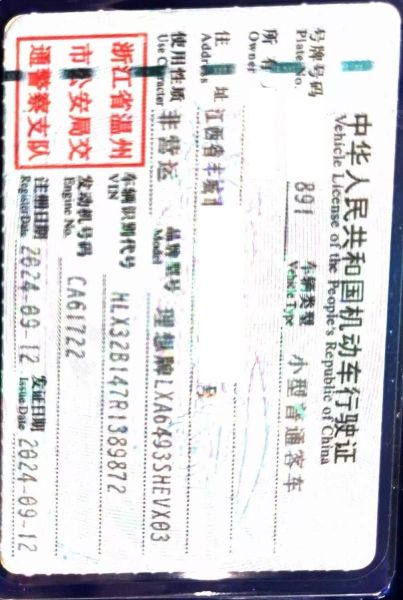 中华人民共和国机动车行驶证
Vehicle License of the People's Republic of China
号牌号码
Plate No.
891
车辆类型
Vehicle Type
小型普通客车
所有人
Owner
住址
Address
江西省丰城
号
使用性质
Use Character
非营运
品牌型号
Model
理想牌LXA6493SHEVX03
浙江省温州
市公安局交
通警察支队
车辆识别代号
VIN
HLX32B147R1389872
发动机号码
Engine No.
CA61722
注册日期
Register Date
2024-09-12
发证日期
Issue Date
2024-09-12